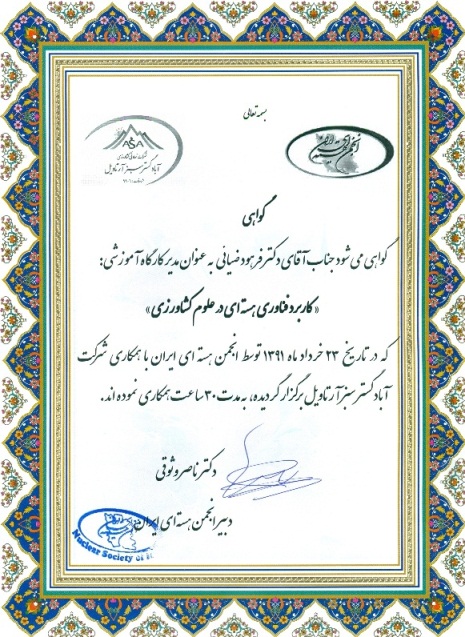 بسمه تعالی
انجمن هسته ای ایران
ASA
آباد گستر سبز آرتاویل
گواهی
گواهی می شود جناب آقای دکتر فرهود ضیائی به عنوان مدیر کارگاه آموزشی:
« کاربرد فناوری هسته ای در علوم کشاورزی»
که در تاریخ ۲۳ خرداد ماه ۱۳۹۱ توسط انجمن هسته ای ایران با همکاری شرکت
آباد گستر سبز آرتاویل برگزار گردیده، به مدت ۳۰ ساعت همکاری نموده اند.
دکتر ناصر وثوقی
دبیر انجمن هسته ای ایران
Nuclear Society of